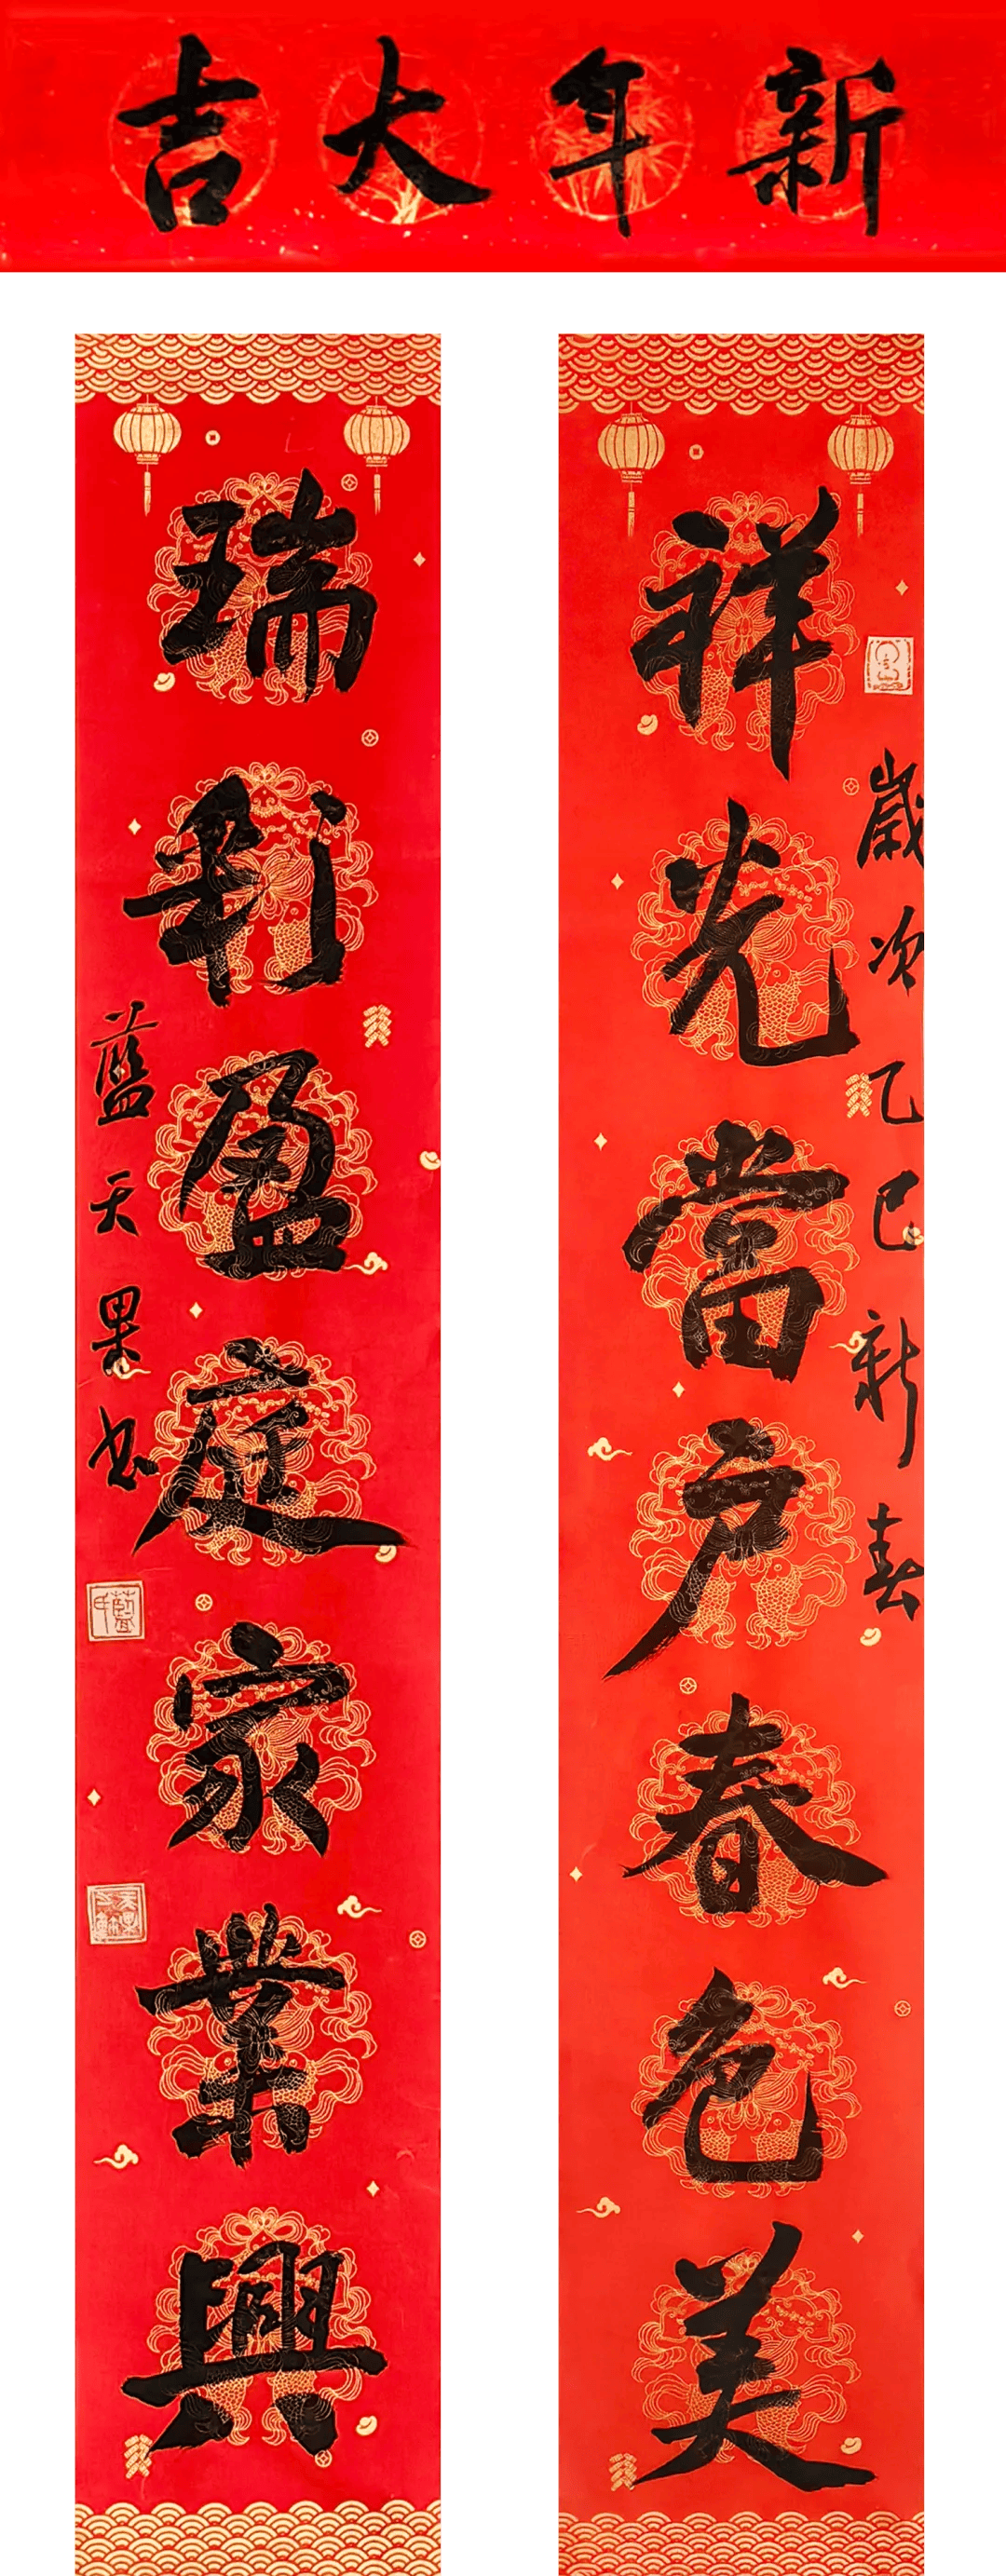 新年大吉
祥光當户春色美
歲次乙巳新春
瑞利盈庭家業興
藍天果书
藍氏